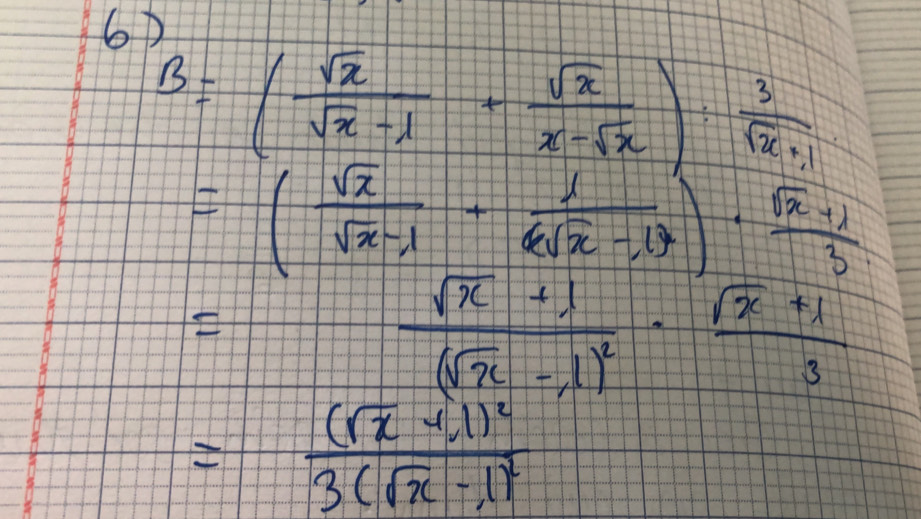 6)
B = ( √x / (√x - 1) + √x / (x - √x) ) : 3 / (√x + 1)
= ( √x / (√x - 1) + 1 / (√x - 1) ) . (√x + 1) / 3
= (√x + 1) / (√x - 1)² . (√x + 1) / 3
= (√x + 1)² / 3(√x - 1)²